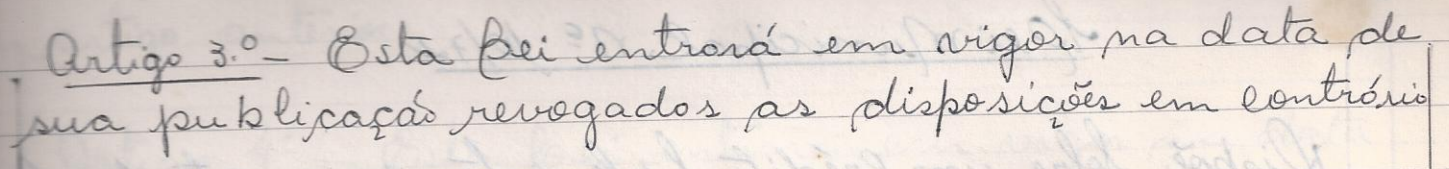 Artigo 3.º - Esta Lei entrará em vigor na data de
sua publicação revogados as disposições em contrário